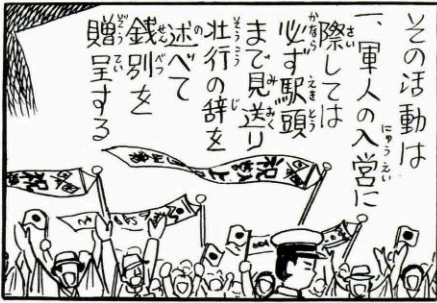 その活動は
一、軍人の入営に
際しては
必ず駅頭
まで見送り
壮行の辞を
述べて
銭別を
贈呈する
祝
上